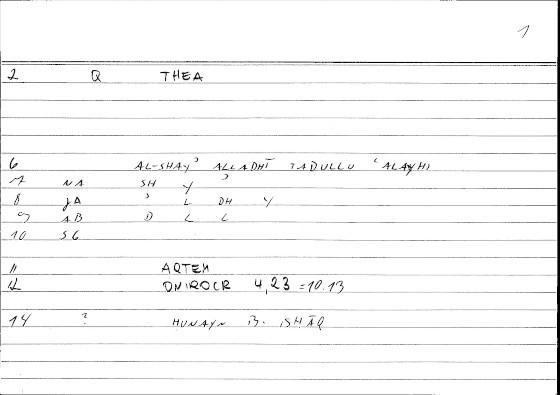 1
2 Q THEA
6 AL-SHAYʾ ALLADHĪ TADULLU ʿALAYHI
7 NA SH Y ʾ
8 JA ʾ L DH Y
9 AB D L L
10 SG
11 ARTEM
12 ONIROCR 4,23 = 10.13
14 ? ḤUNAYN B. ISḤĀQ